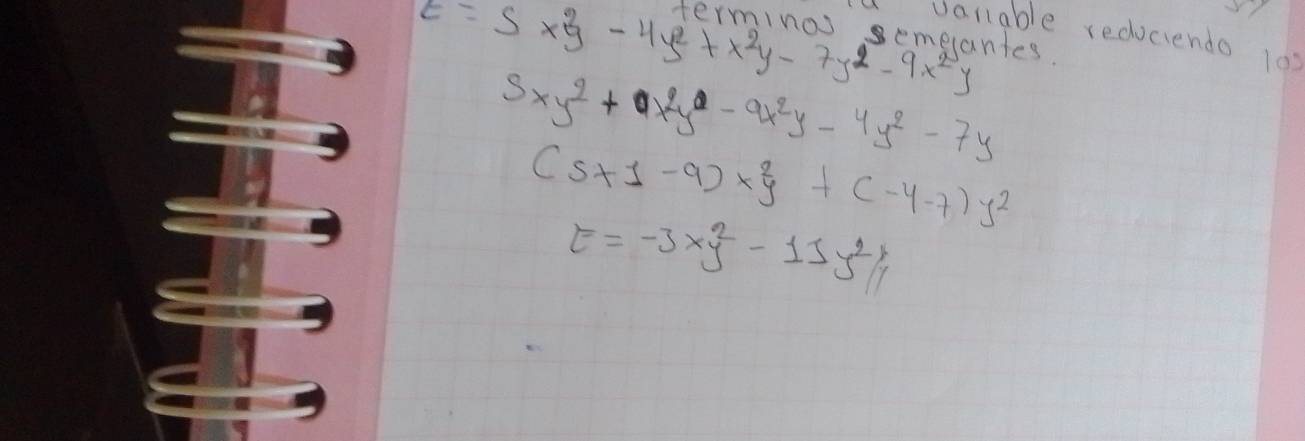 variable reduciendo los
terminos semejantes.
E = 5x²y - 4y² + x²y - 7y² - 9x²y
5xy² + x²y - 9x²y - 4y² - 7y
(5+1-9)x²y + (-4-7)y²
E = -3x²y - 11y² //